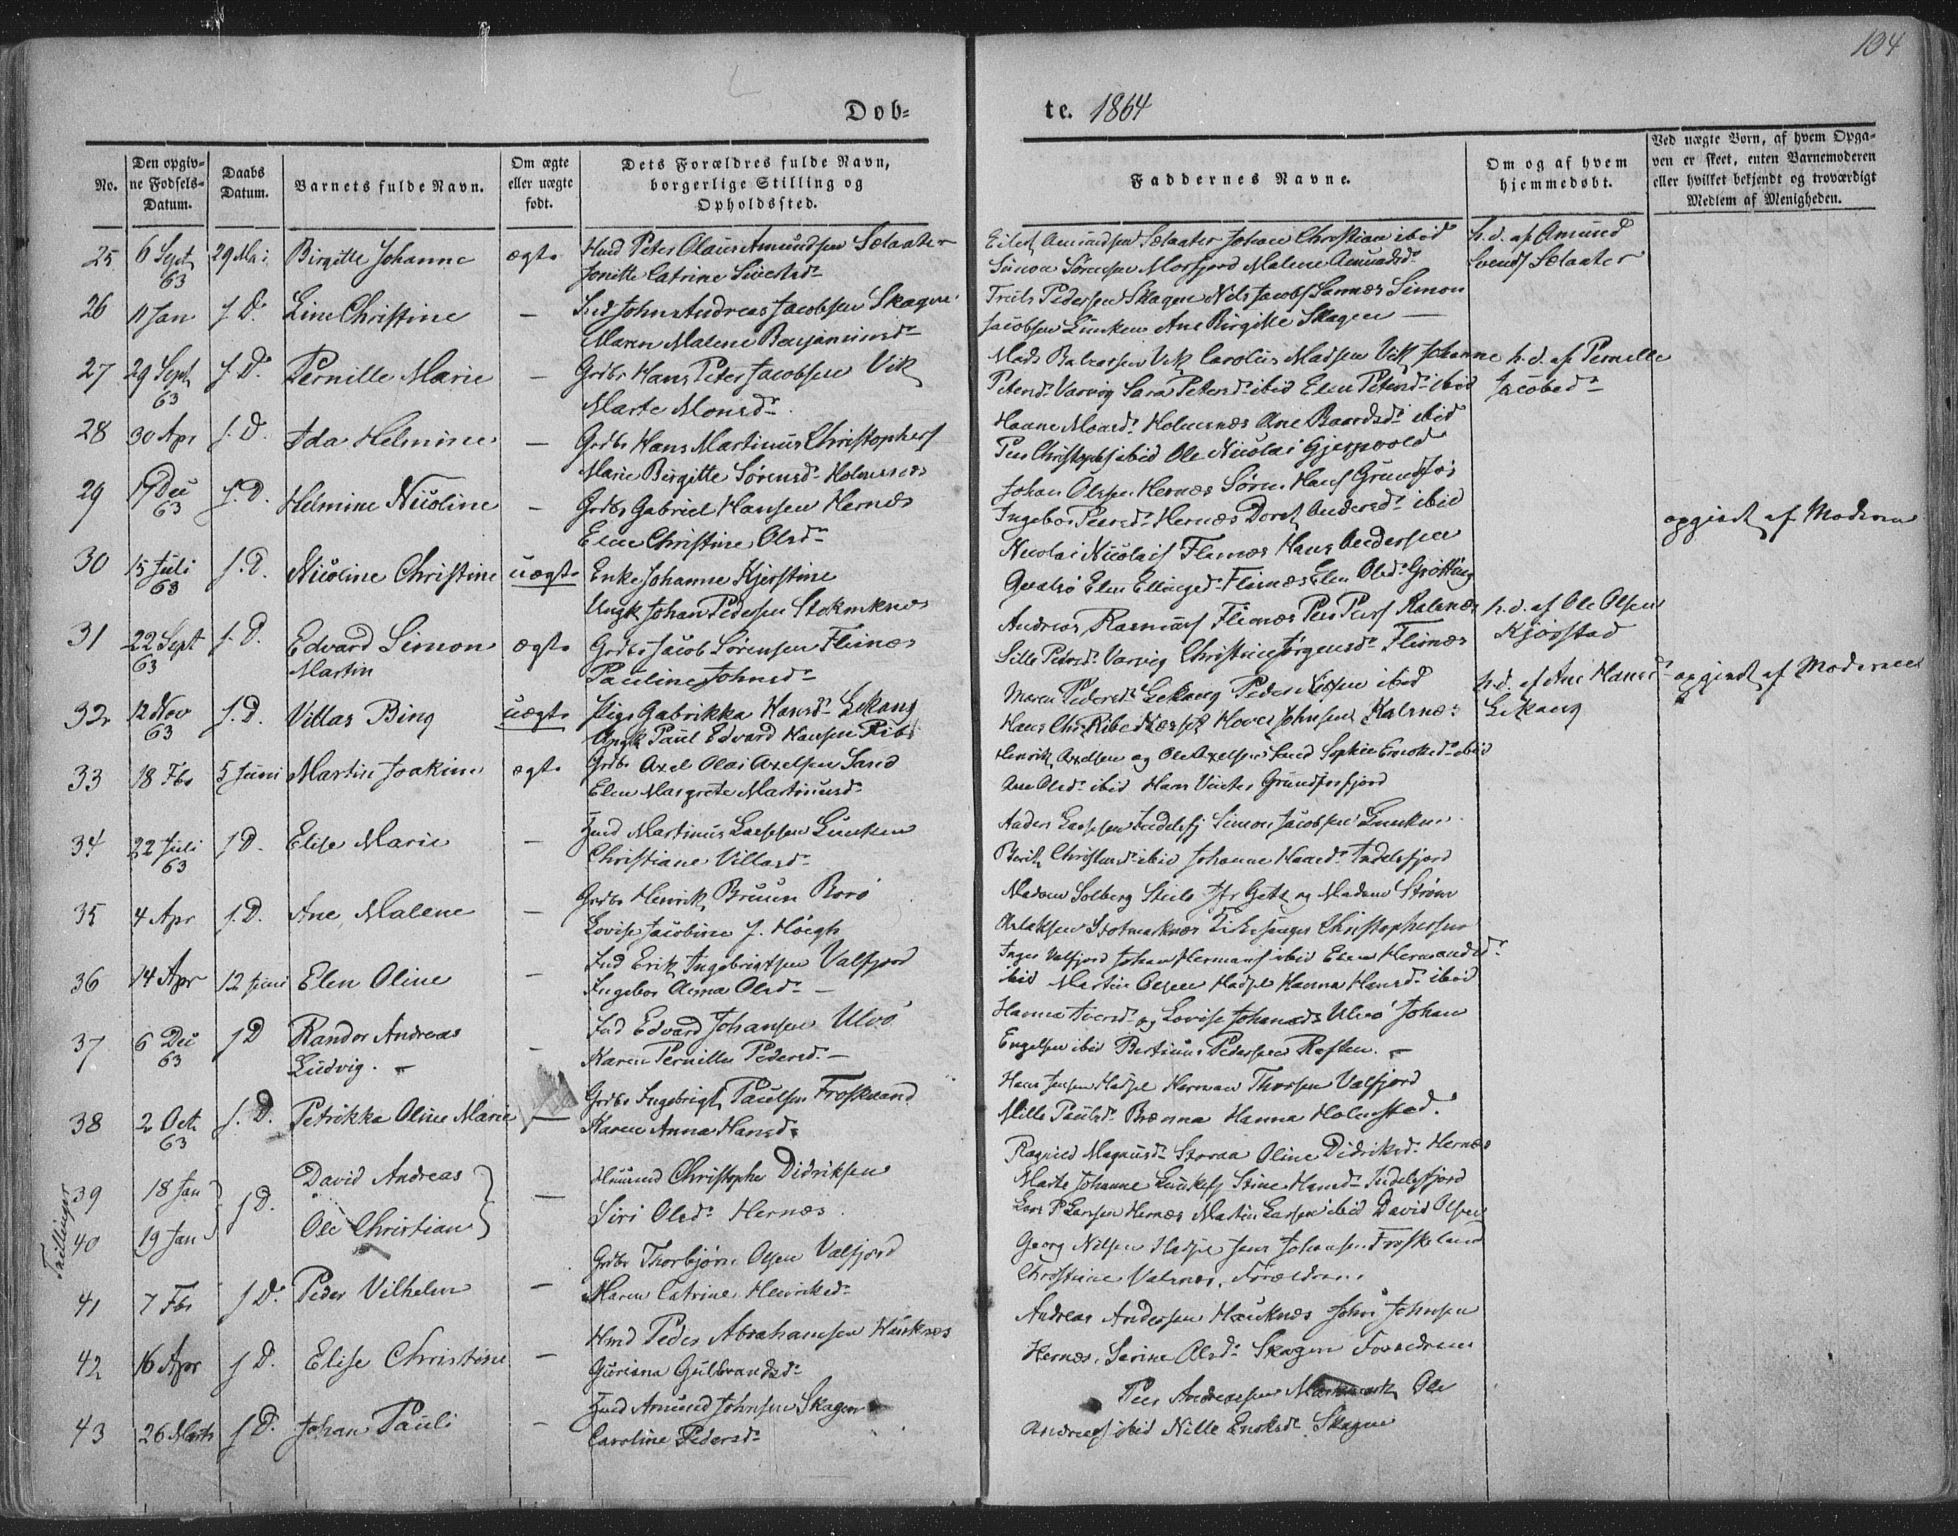 104
Døb-
te. 1864
No.
Den opgiv-
ne Fødsels-
Datum.
Daabs
Datum.
Barnets fulde Navn.
Om ægte
eller uægte
født.
Dets Forældres fulde Navn,
borgerlige Stilling og
Opholdssted.
Faddernes Navne.
Om og af hvem
hjemmedøbt.
Ved uægte Børn, af hvem Opga-
ven er skeet, enten Barnemoderen
eller hvilket bekjendt og troværdigt
Medlem af Menigheden.
25 6 Sept 63 29 Mai Birgitte Johanne ægte Hmd Peter Olaus Amundsen Sælaater
Catrine
Amundsen Sælaater Johan Christian ibid
Simon Sørensen Morfjord Malene Amundsd.
h. d. af Amund
Svends Sælaater
26 11 Jan f. D. Line Christine — Ind John Andreas Jacobsen Skagen
Maren Malene Benjaminsd.
Truls Pedersen Skagen Nils Jacobs Sannes Simon
Jacobsen Lunken Ane Birgitte Skagen —
27 29 Sept 63 f. D. Pernille Marie — Grdbr Hans Peter Jacobsen Vik
Marte Monsd.
Mads Vik Carolus Madsen Vik Johanne
Petersd. Varvig Sara Petersd. ibid Elen Petersd. ibid
h. d. af Pernille
Jacobsd.
28 30 Apr f. D. Ida Helmine — Grdbr Hans Martinus Christophers
Marie Birgitte Sørensd. Holmsnes
Holmsnæs Ane Baardsd. ibid
Peer Christophs ibid Ole Nicolai
29 17 Dec 63 f. D. Helmine Nicoline — Grdbr Gabriel Hansen Hernæs
Elen Christine Olsd.
Johan Olsen Hernæs Søren Hans Grundfør
Ingebor Peersd. Hernæs Dorth Andersd. ibid
30 15 Juli 63 f. D. Nicoline Christine uægte Enke Johanne Kjerstine
Ungk Johan Pedersen Stokmknes
Nicolai Nicolais Flemnæs Hans Andersen
Elen Ellingsd. Flemæs Elen Olsd. Grøtting
opgivet af Moderen
31 22 Sept 63 f. D. Edvard Simon
Martin
ægte Grdbr Jacob Sørensen Flemnæs
Pauline Johnsd.
Andreas Rasmus Flemæs Peer Peers Kalsnæs
Sille Pedersd. Varvig Christine Jørgensd. Flemnæs
h. d. af Ole Olsen
Kjørstad
32 12 Nov 63 f. D. Villas Bing uægte Pige Gabrikka Hansd. Lekang
Ungk Paul Edvard Hansen Ribe
Maren Pedersd. Lekang Peder Olsen ibid
Hans Chr. Ribe Johnsen Kalsnæs
h. d. af Ane Hansd.
Lekang
opgivet af Moderen
33 18 Fbr 5 Juni Martin Joakim ægte Grdbr Axel Olai Axelsen Sand
Elen Margrete Martinusd.
Henrik Axelsen og Ole Axelsen Sand Sophie ibid
Ane Olsd. ibid Hans Grundforfjord
34 22 Juli 63 f D. Elise Marie — Hmd Martinus Larssen Lunken
Christiane Villasd.
Anders Larssen Indelsfj Simon Jacobsen Lunken
Berit Christensd. ibid Johanne Hansd. Indelsfjord
35 4 Apr f. D. Ane Malene — Grdbr Henrik Bruun Borø
Lovise Jacobine J. Høegh
Madam Solberg og Madam Strøm
Stokmarknæs Kirkesanger Christophersen
36 14 Apr 12 Juni Elen Oline — Ind Erik Ingebrigtsen Valfjord
Ingebor Anna Olsd. —
Inger Valfjord Johan Hermans ibid Elen Hermansd.
ibid Martin Hadsel Hanna Hansd. ibid
37 6 Dec 63 f D Randor Andreas
Ludvig. —
— Ind Edvard Johansen Ulvø
Karen Pernille Pedersd. —
Hanna Iversd. og Lovise Johansd. Ulvø Johan
Engelsen ibid Bertinus Pedersen Raften. —
38 2 Oct 63 f. D. Petrikka Oline Marie — Grdbr Ingebrigt Paulsen Froskeland
Karen Anna Hansd.
Hans Jensen Hadsel Herman Thorsen Valfjord
Nille Paulsd. Brænna Hanna Holmstad.
Tvillinger
39 18 Jan
40 19 Jan
f D.
David Andreas
Ole Christian
— Amund Christopher Didriksen
Siri Olsd. Hernæs
Ragnild Magnusd. Storaa Oline Didriksd. Hernæs
Marte Johanne Stine Hansd. Indelsfjord
Lars P Larsen Hernæs Martin Larsen ibid David Olsen
41 7 Fbr f D. Peder Vilhelm — Grdbr Thorbjørn Olsen Valfjord
Maren Catrine Henriksd.
Georg Nilsen Hadsel Jens Johansen Froskeland
Christine Forældrene
42 16 Apr f D. Elise Christine — Hmd Peder Abrahamsen Hauknes
Guriana Gulbrandsd.
Andreas Andersen Hauknæs John Johnsen
Hernæs. Serine Olsd. Skagen Forældrene
43 26 Marts f D. Johan Pauli — Hmd Amund Johnsen Skagen
Caroline Pedersd.
Peer Andreassen Ole
Andreas ibid Nille Skagen